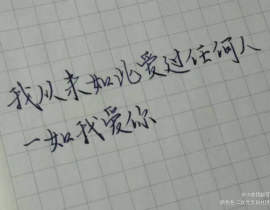 我从未如此爱过任何人
一如我爱你